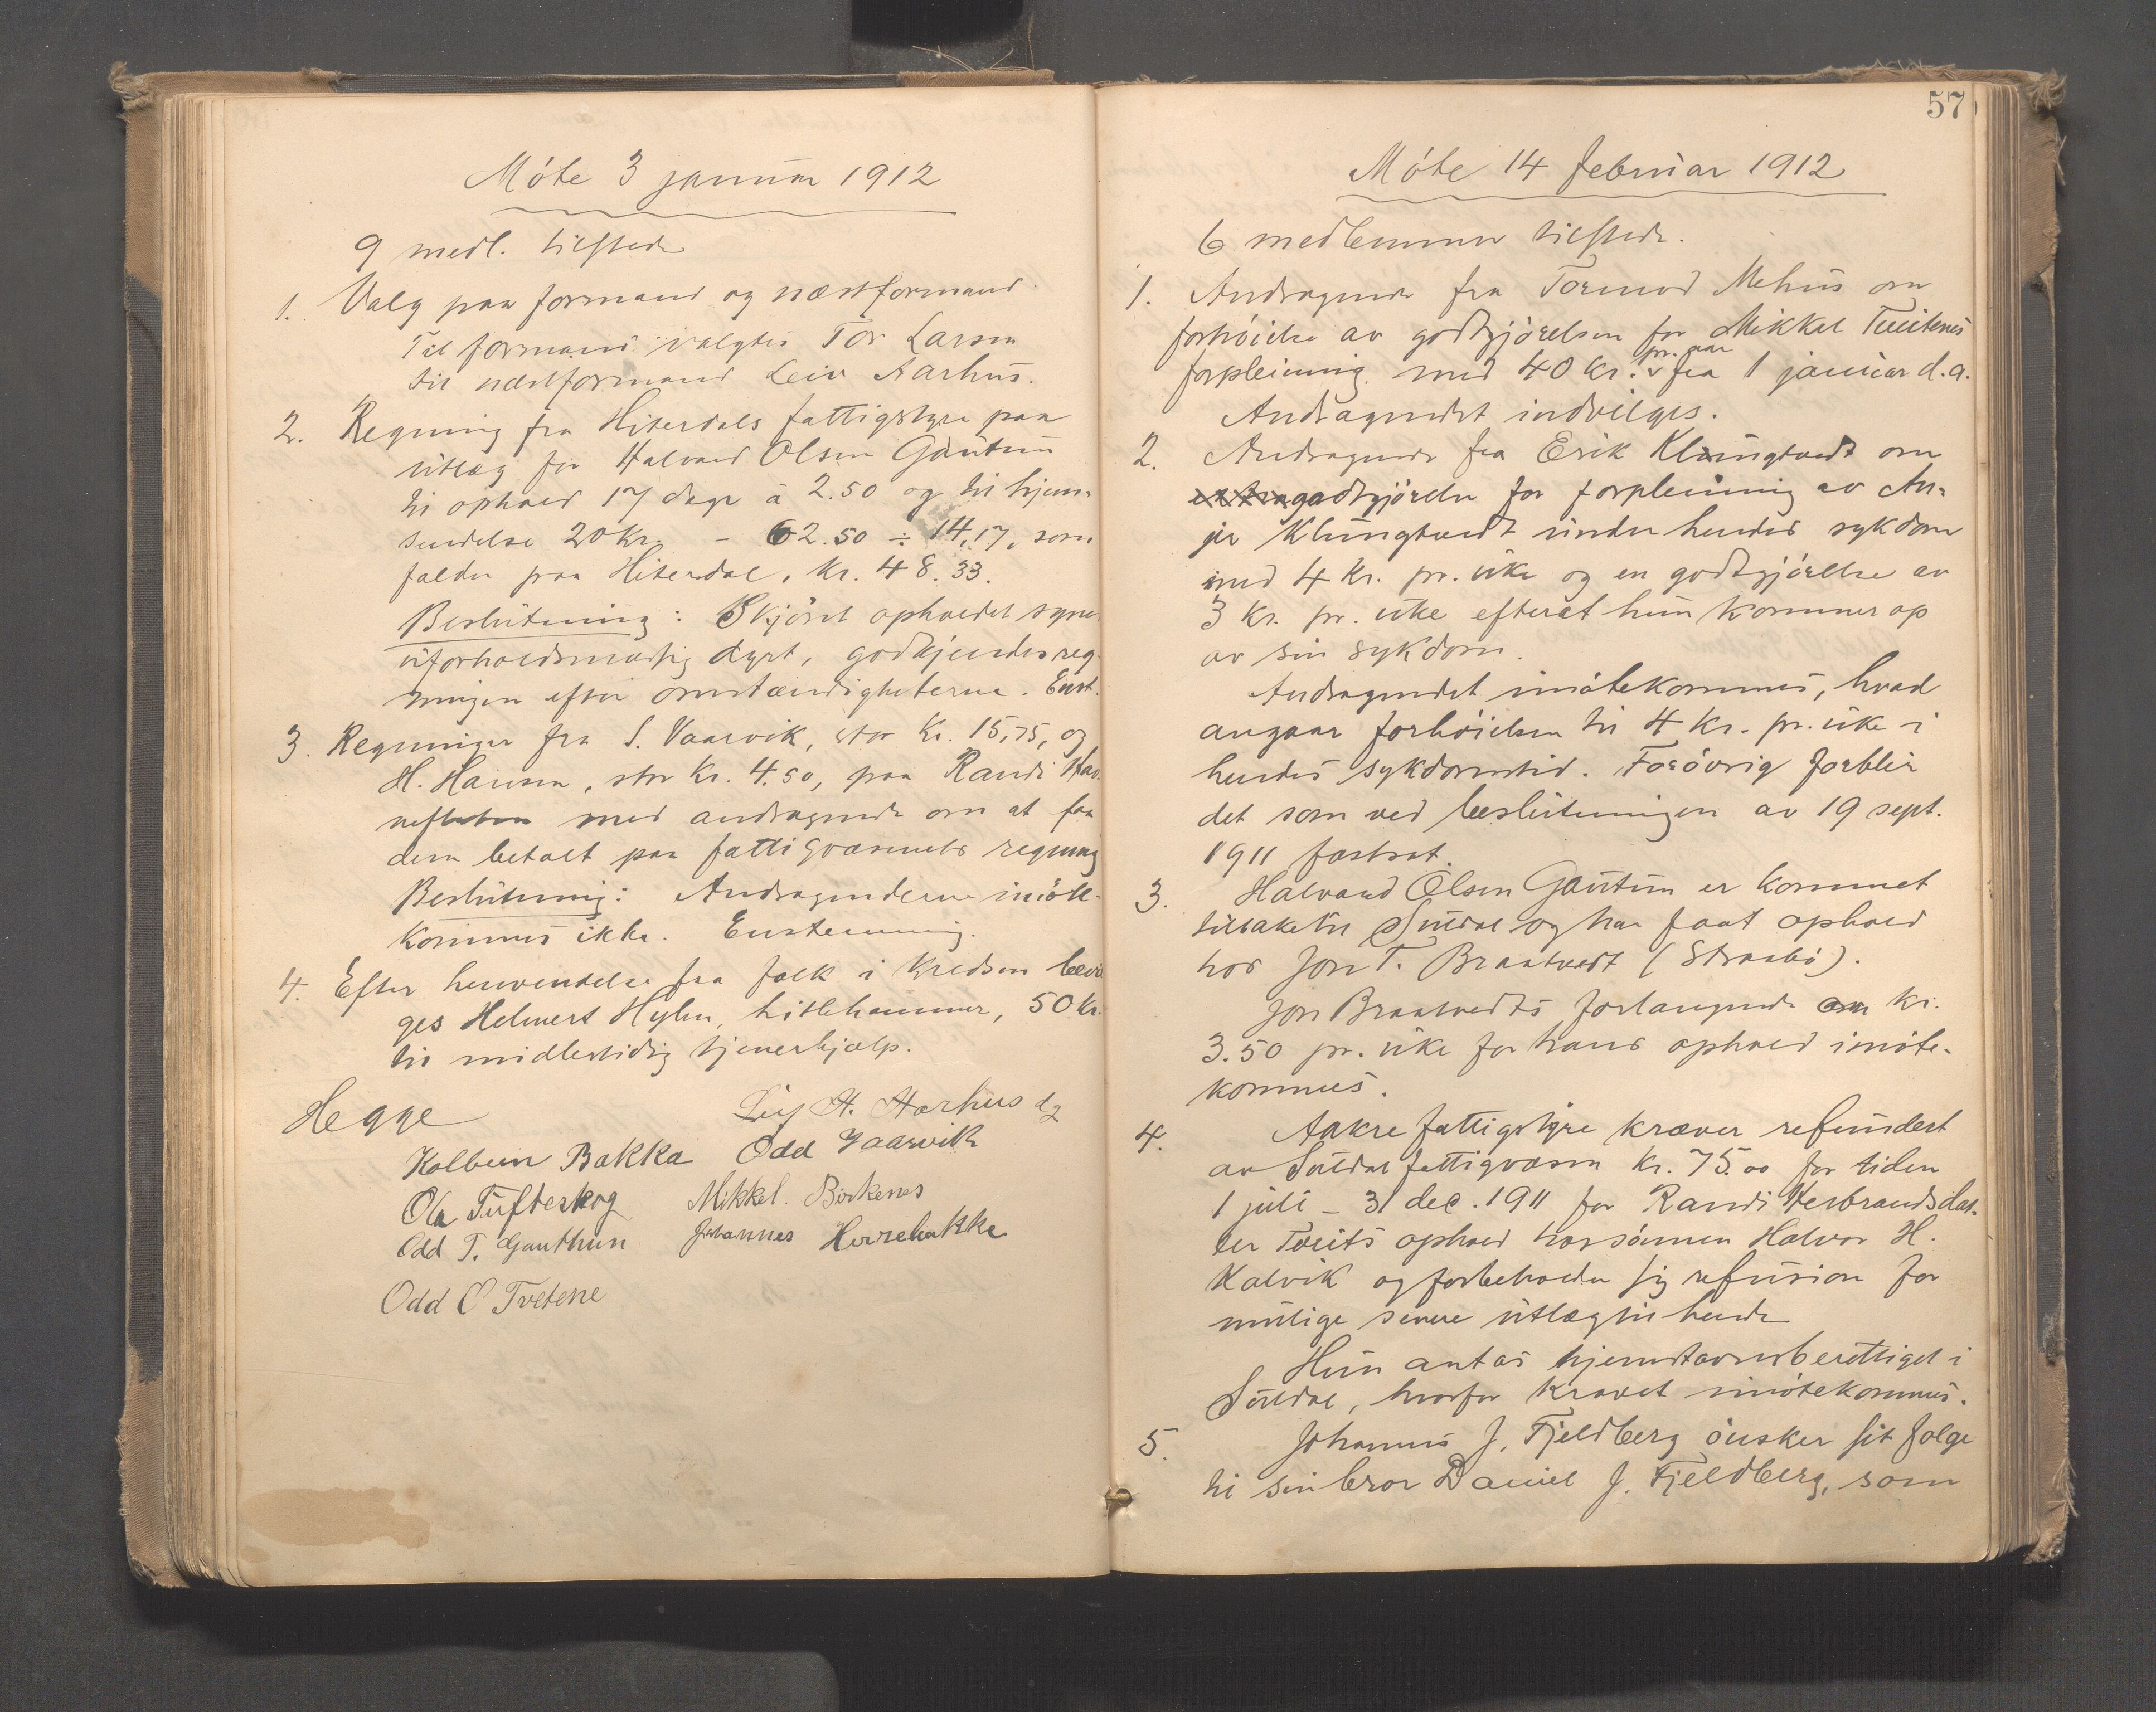 Móte 3 januar 1912
9 medl. tilstede
1. Valg paa formand og næstformand.
Til formand valgtes Tor Larsen
til næstformand Leiv Aarhus.
2. Regning fra Hiterdals fattigstyre paa
utlæg for Halvard Olsen Gautun
til ophold 17 dage à 2.50 og til hjem-
sendelse 20 kr. – 62.50 ÷ 14,17, som
falder paa Hiterdal, kr. 48.33.
Beslutning: Skjönt opholdet synes
uforholdsmæssig dyrt, godkjendes reg-
ningen efter omstændigheterne. Enst.
3. Regninger fra S. Vaarvik, stor kr. 15,75, og
H. Hansen, stor kr. 4.50, paa Randi
med andragende om at faa
dem betalt paa fattigvæsenets regning
Beslutning: Andragenderne imöte-
kommes ikke. Enstemmig.
4. Efter henvendelse fra folk i kredsen bevil
ges Helmert Hylen, Litlehammer, 50 kr.
til midlertidig hjemehjælp.
Hegge
Leif A. Aarhus
Kolbein Bakka Odd Vaarvik
Ola Tufteskog Mikkel Birkenes
Odd T. Gauthun Johannes Herrebakke
Odd O Tvetene
57
Móte 14 februar 1912
6 medlemmer tilstede.
1. Andragende fra Tormod Mehus om
forhöielse av godtgjörelsen for Mikkel Tveitenes
pr. aar
forpleining med 40 kr. fra 1 januar d.a.
Andragendet indvilges.
2. Andragende fra Erik Klungtvedt om
extra godtgjörelse for forpleining av An-
je Klungtvedt under hendes sykdom
med 4 kr. pr. uke og en godtgjörelse av
3 kr. pr. uke efterat hun kommer op
av sin sykdom.
Andragendet imötekommes, hvad
angaar forhöielsen til 4 kr. pr. uke i
hendes sykdomstid. Foróvrig forblir
det som ved beslutningen av 19 sept.
1911 fastsat.
3. Halvard Olsen Gautun er kommet
tilbake til Suldal og har faat ophold
hos Jon T. Braatvedt (Straabö).
Jon Braatvedts forlangende om kr.
3.50 pr. uke for hans ophold imöte-
kommes.
4. Aakre fattigstyre kræver refundert
av Suldal fattigvæsen kr. 75.00 for tiden
1 juli – 31 dec. 1911 for Randi Herbrandsdat-
ter Tveits ophold hos sönnen Halvor H.
Kalvik og forbeholder sig refusion for
mulige senere utlæg til hende
Hun antas hjemstavnsberettiget i
Suldal, hvorfor kravet imötekommes.
5. Johannes J. Fjeldberg önsker sit fölge
til sin bror Daniel J. Fjeldberg, som